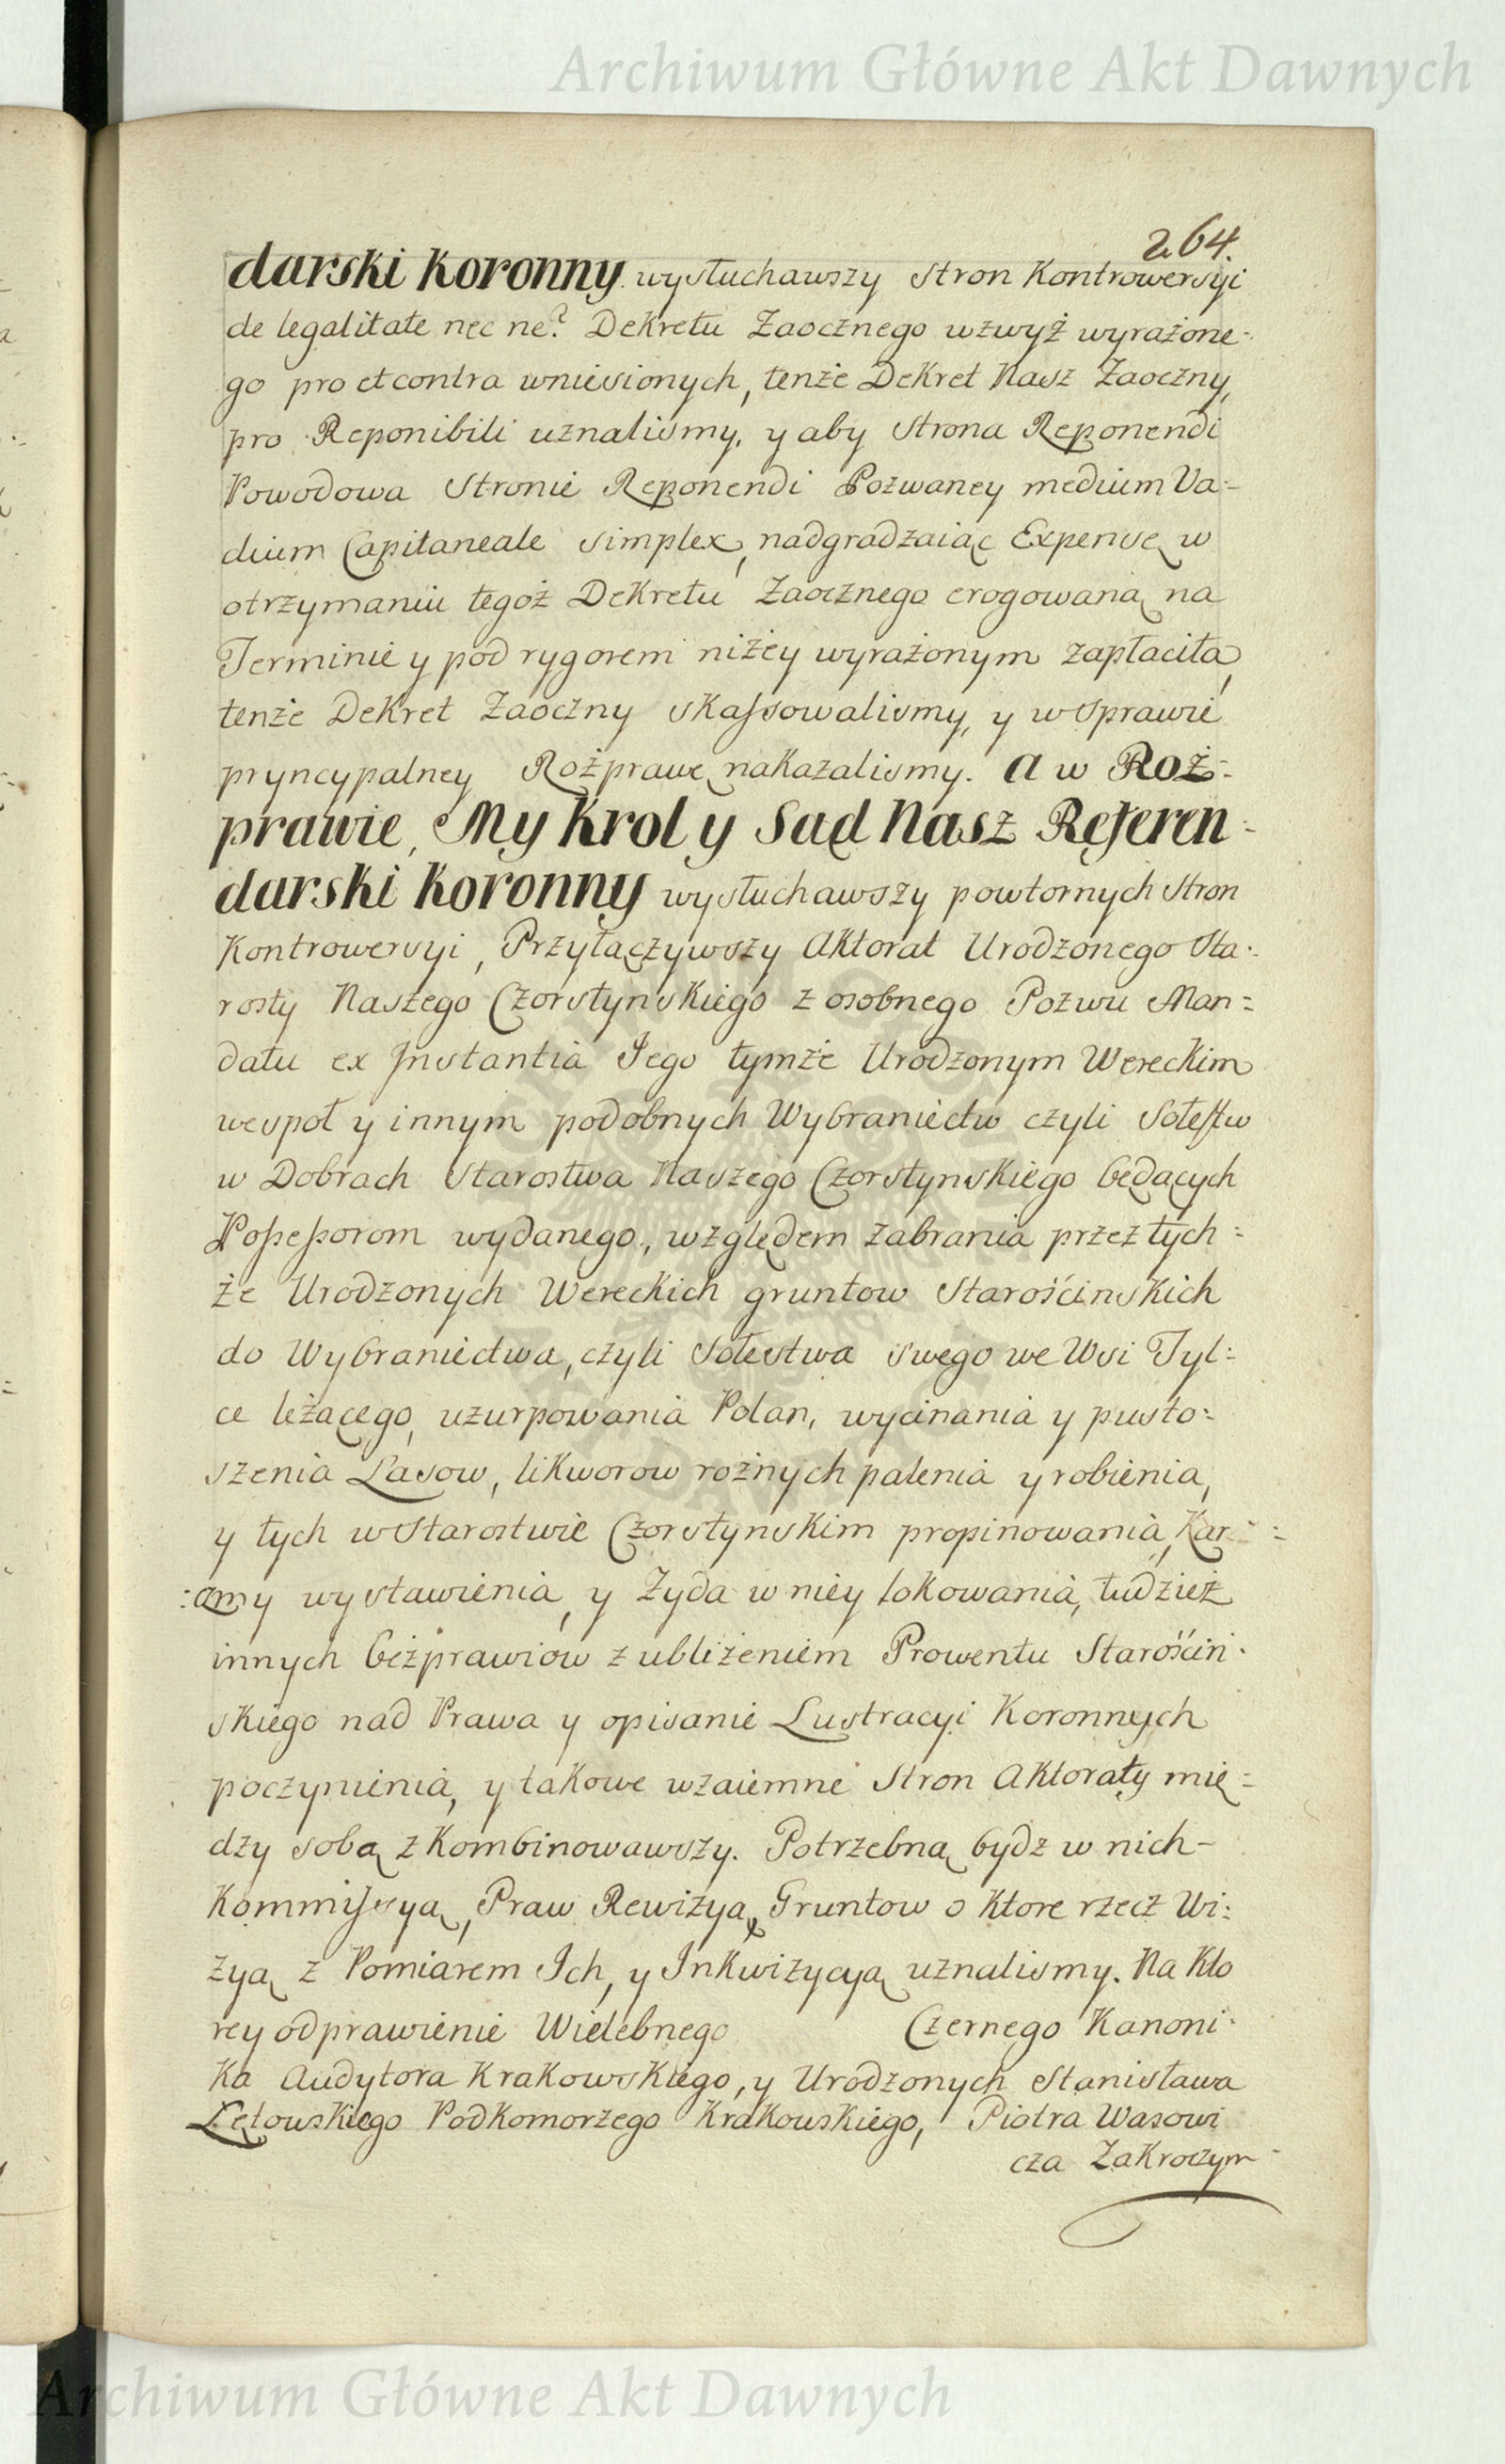 Archiwum Główne Akt Dawnych
264.
darski Koronny wysłuchawszy Stron Kontrowersyi
de legalitate nec ne? Dekretu Zaocznego wzwyż wyrażone-
go pro et contra wniesionych, tenże Dekret Nasz Zaoczny,
pro Reponibili uznalismy, y aby Strona Reponendi
Powodowa Stronie Reponendi Pozwaney medium Va-
dium Capitaneale simplex, nadgradzaiąc Expensę w
otrzymaniu tegoż Dekretu Zaocznego erogowaną na
Terminie y pod rygorem niżey wyrażonym zapłaciła,
tenże Dekret Zaoczny skassowalismy, y w Sprawie
pryncypalney Rożprawę nakazalismy. A w Roż-
prawie, My Krol y Sąd Nasz Referen-
darski Koronny wysłuchawszy powtornych Stron
Kontrowersyi, Przyłączywszy Aktorat Urodzonego Sta-
rosty Naszego Czorsztynskiego z osobnego Pozwu Man-
datu ex Instantia Jego tymże Urodzonym Wereckim
wespoł y innym podobnych Wybraniectw czyli Sołestw
w Dobrach Starostwa Naszego Czorstynskiego będących
Possessorom wydanego, względem zabrania przez tych-
że Urodzonych Wereckich gruntow Starościnskich
do Wybraniectwa, czyli Sołestwa swego we Wsi Tyl-
ce leżącego, uzurpowania Polan, wycinania y pusto-
szenia Lasow, likworow rożnych palenia y robienia,
y tych w Starostwie Czorstynskim propinowania, Kar-
:czmy wystawienia, y Zyda w niey lokowania, tudzież
innych beżprawiow z ubliżeniem Prowentu Starościn-
skiego nad Prawa y opisanie Lustracyi Koronnych
poczynienia, y takowe wzaiemne Stron Aktoraty mię-
dzy sobą z Kombinowawszy. Potrzebną bydz w nich-
Kommissyą, Praw Rewizyą, Gruntow o ktore rzecz Wi-
zyą z Pomiarem Ich, y Inkwizycyą uznalismy. Na kto
rey odprawienie Wielebnego Czernego Kanoni-
ka Audytora Krakowskiego, y Urodzonych Stanisława
Łętowskiego Podkomorzego Krakowskiego, Piotra Wasowi
cza Zakroczym-
Archiwum Główne Akt Dawnych